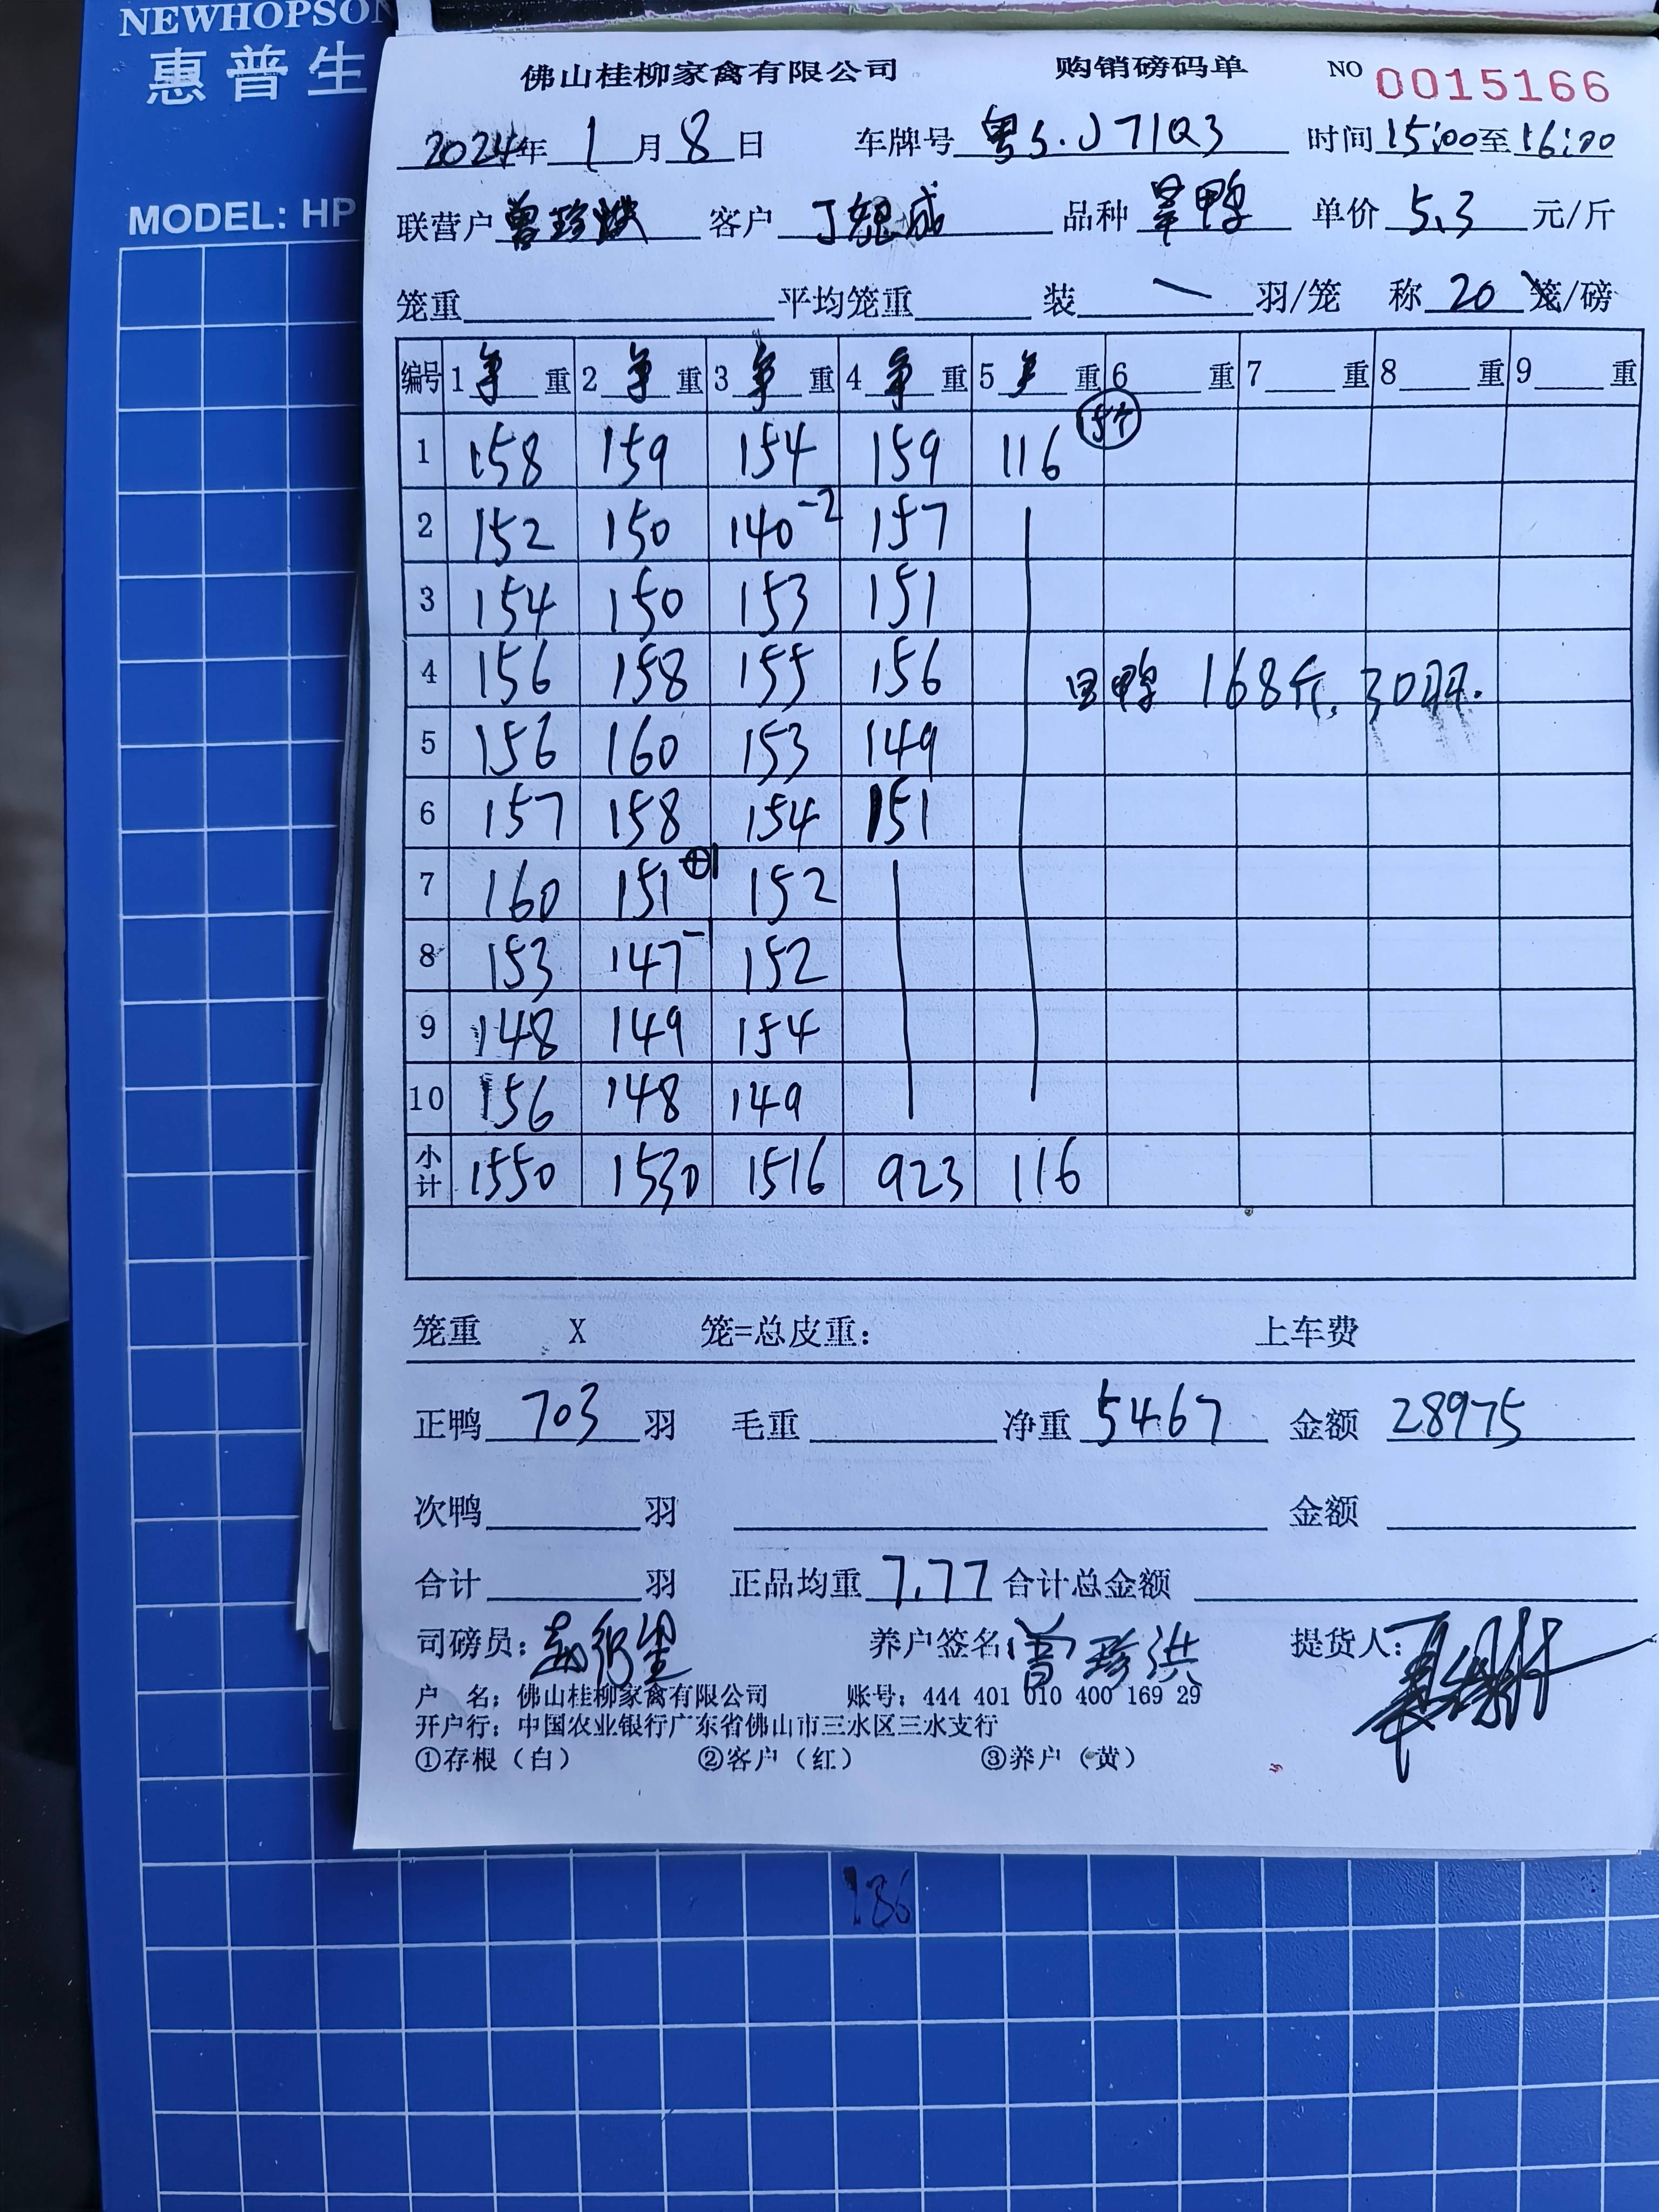 NEWHOPSON
惠普生
MODEL: HP
佛山桂柳家禽有限公司 购销磅码单 NO 0015166
2024年1月8日 车牌号 粤S.J71Q3 时间 15:00至16:00
联营户 曾珍 客户 丁银成 品种 旱鸭 单价 5.3 元/斤
笼重 平均笼重 装 一 羽/笼 称 20 笼/磅
编号 1 重 2 重 3 重 4 重 5 重 6 重 7 重 8 重 9 重
15个
1 158 159 154 159 116
2 152 150 140-2 157
3 154 150 153 151
4 156 158 155 156 回鸭 168斤, 30羽.
5 156 160 153 149
6 157 158 154 151
7 160 151⊕1 152
8 153 147-1 152
9 148 149 154
10 156 148 149
小计 1550 1530 1516 923 116
笼重 X 笼=总皮重: 上车费
正鸭 703 羽 毛重 净重 5467 金额 28975
次鸭 羽 金额
合计 羽 正品均重 7.77 合计总金额
司磅员: 养户签名: 曾珍洪 提货人:
户 名: 佛山桂柳家禽有限公司 账号: 444 401 010 400 169 29
开户行: 中国农业银行广东省佛山市三水区三水支行
①存根(白) ②客户(红) ③养户(黄)
186